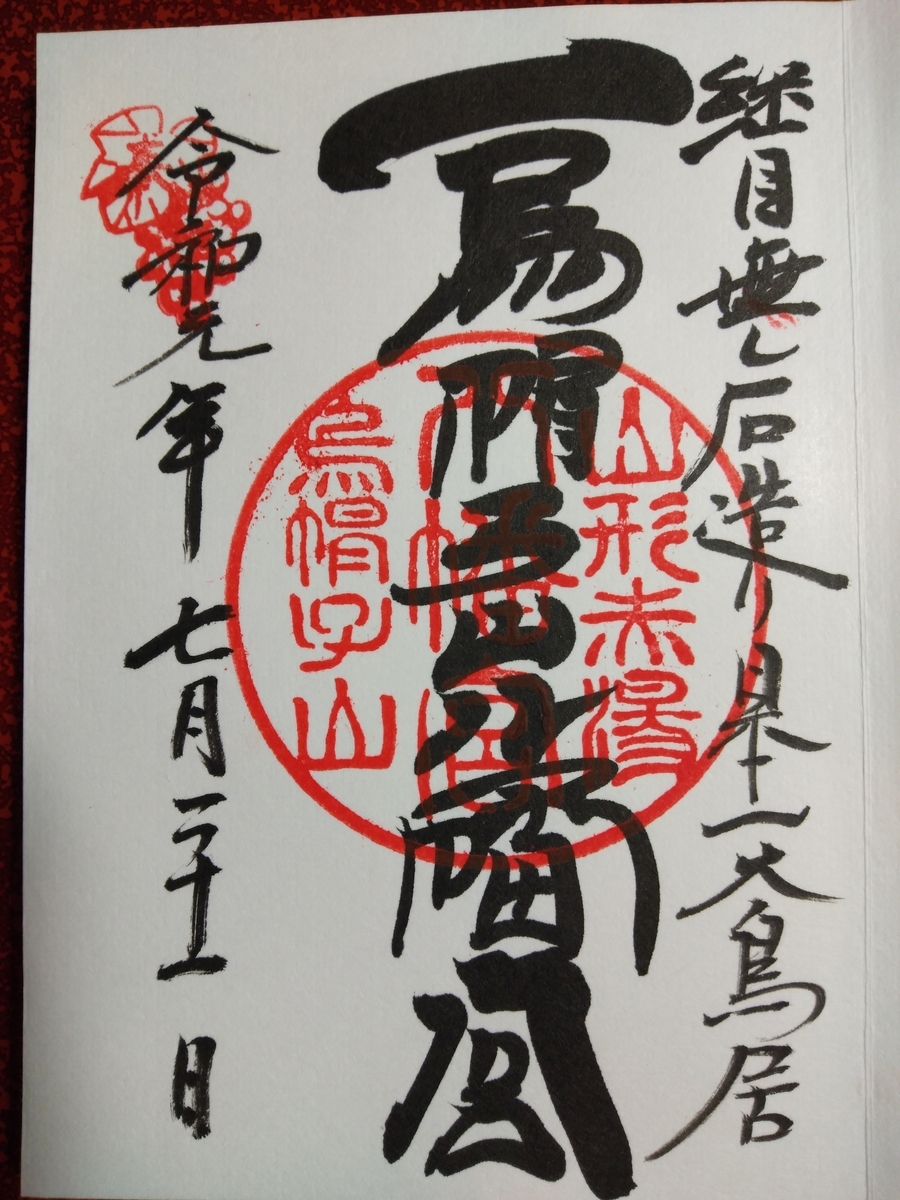 継目無し石造り日本一大鳥居
烏帽子山八幡宮
山形赤湯
八幡宮
烏帽子山
令和元年 七月二十一日